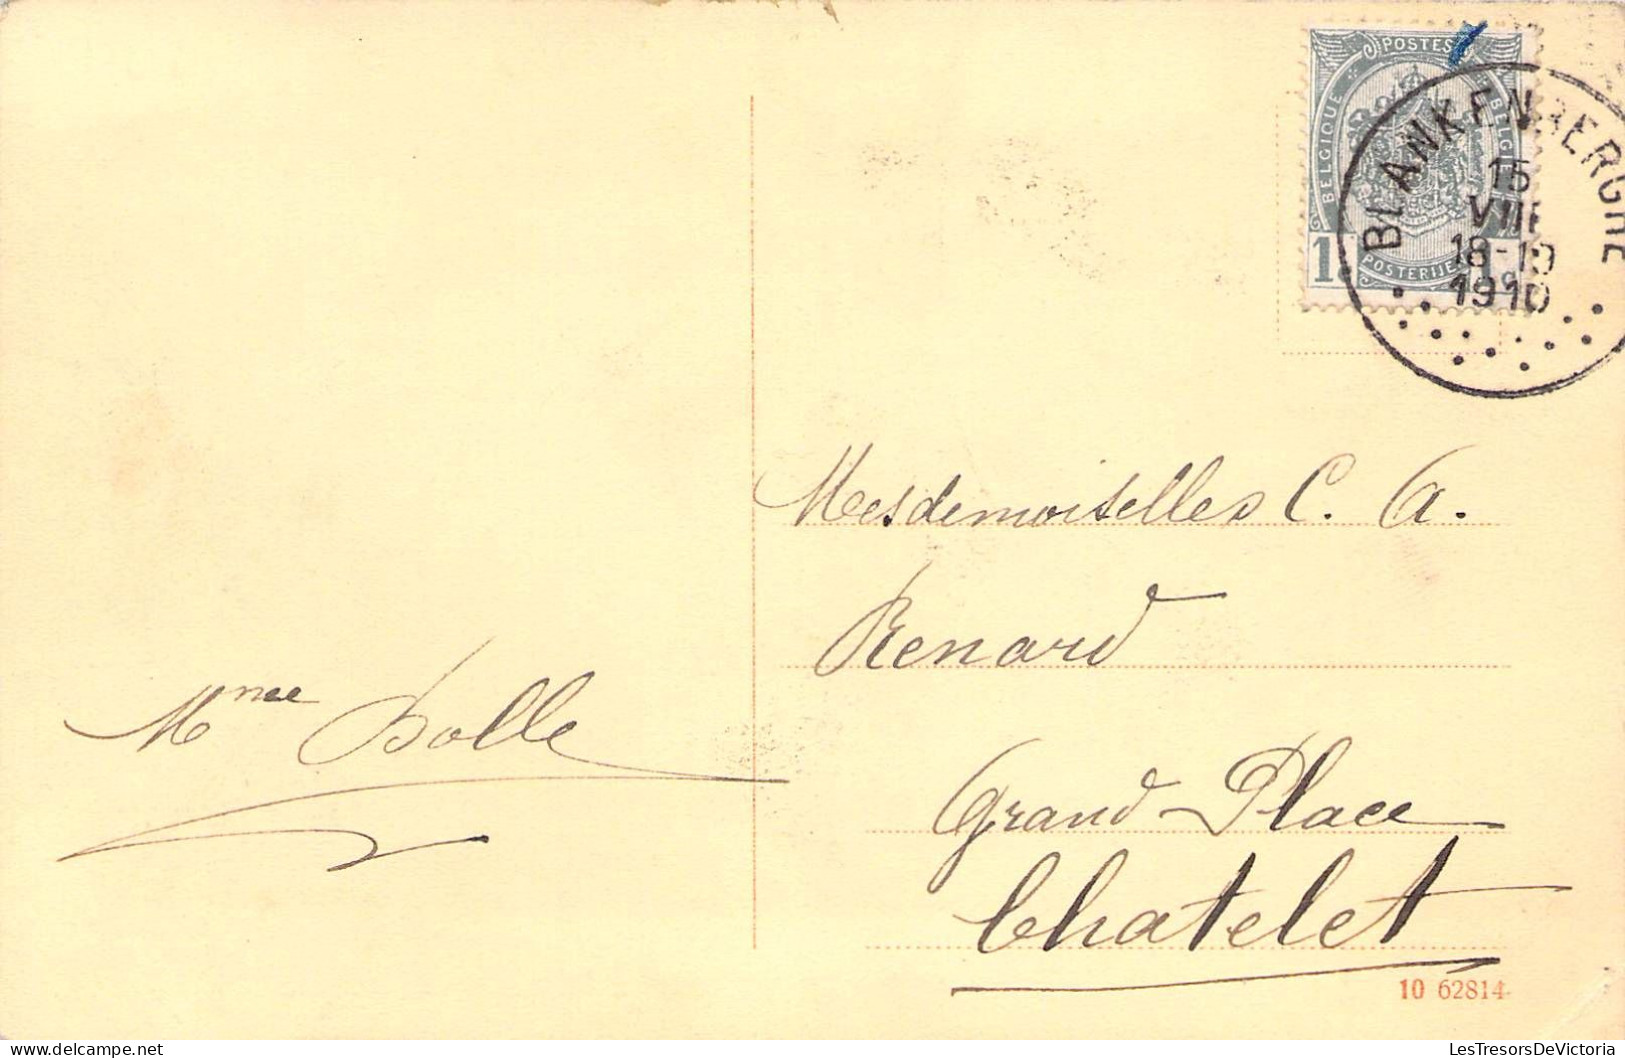 POSTES
BELGIQUE
BELGIË
1c
POSTERIJEN
1c
BLANKENBERGHE
15
VIII
18-19
1910
Mesdemoiselles C. A.
Renard
Grand-Place
Chatelet
Mme Dolle
10 62814
LesTresorsDeVictoria